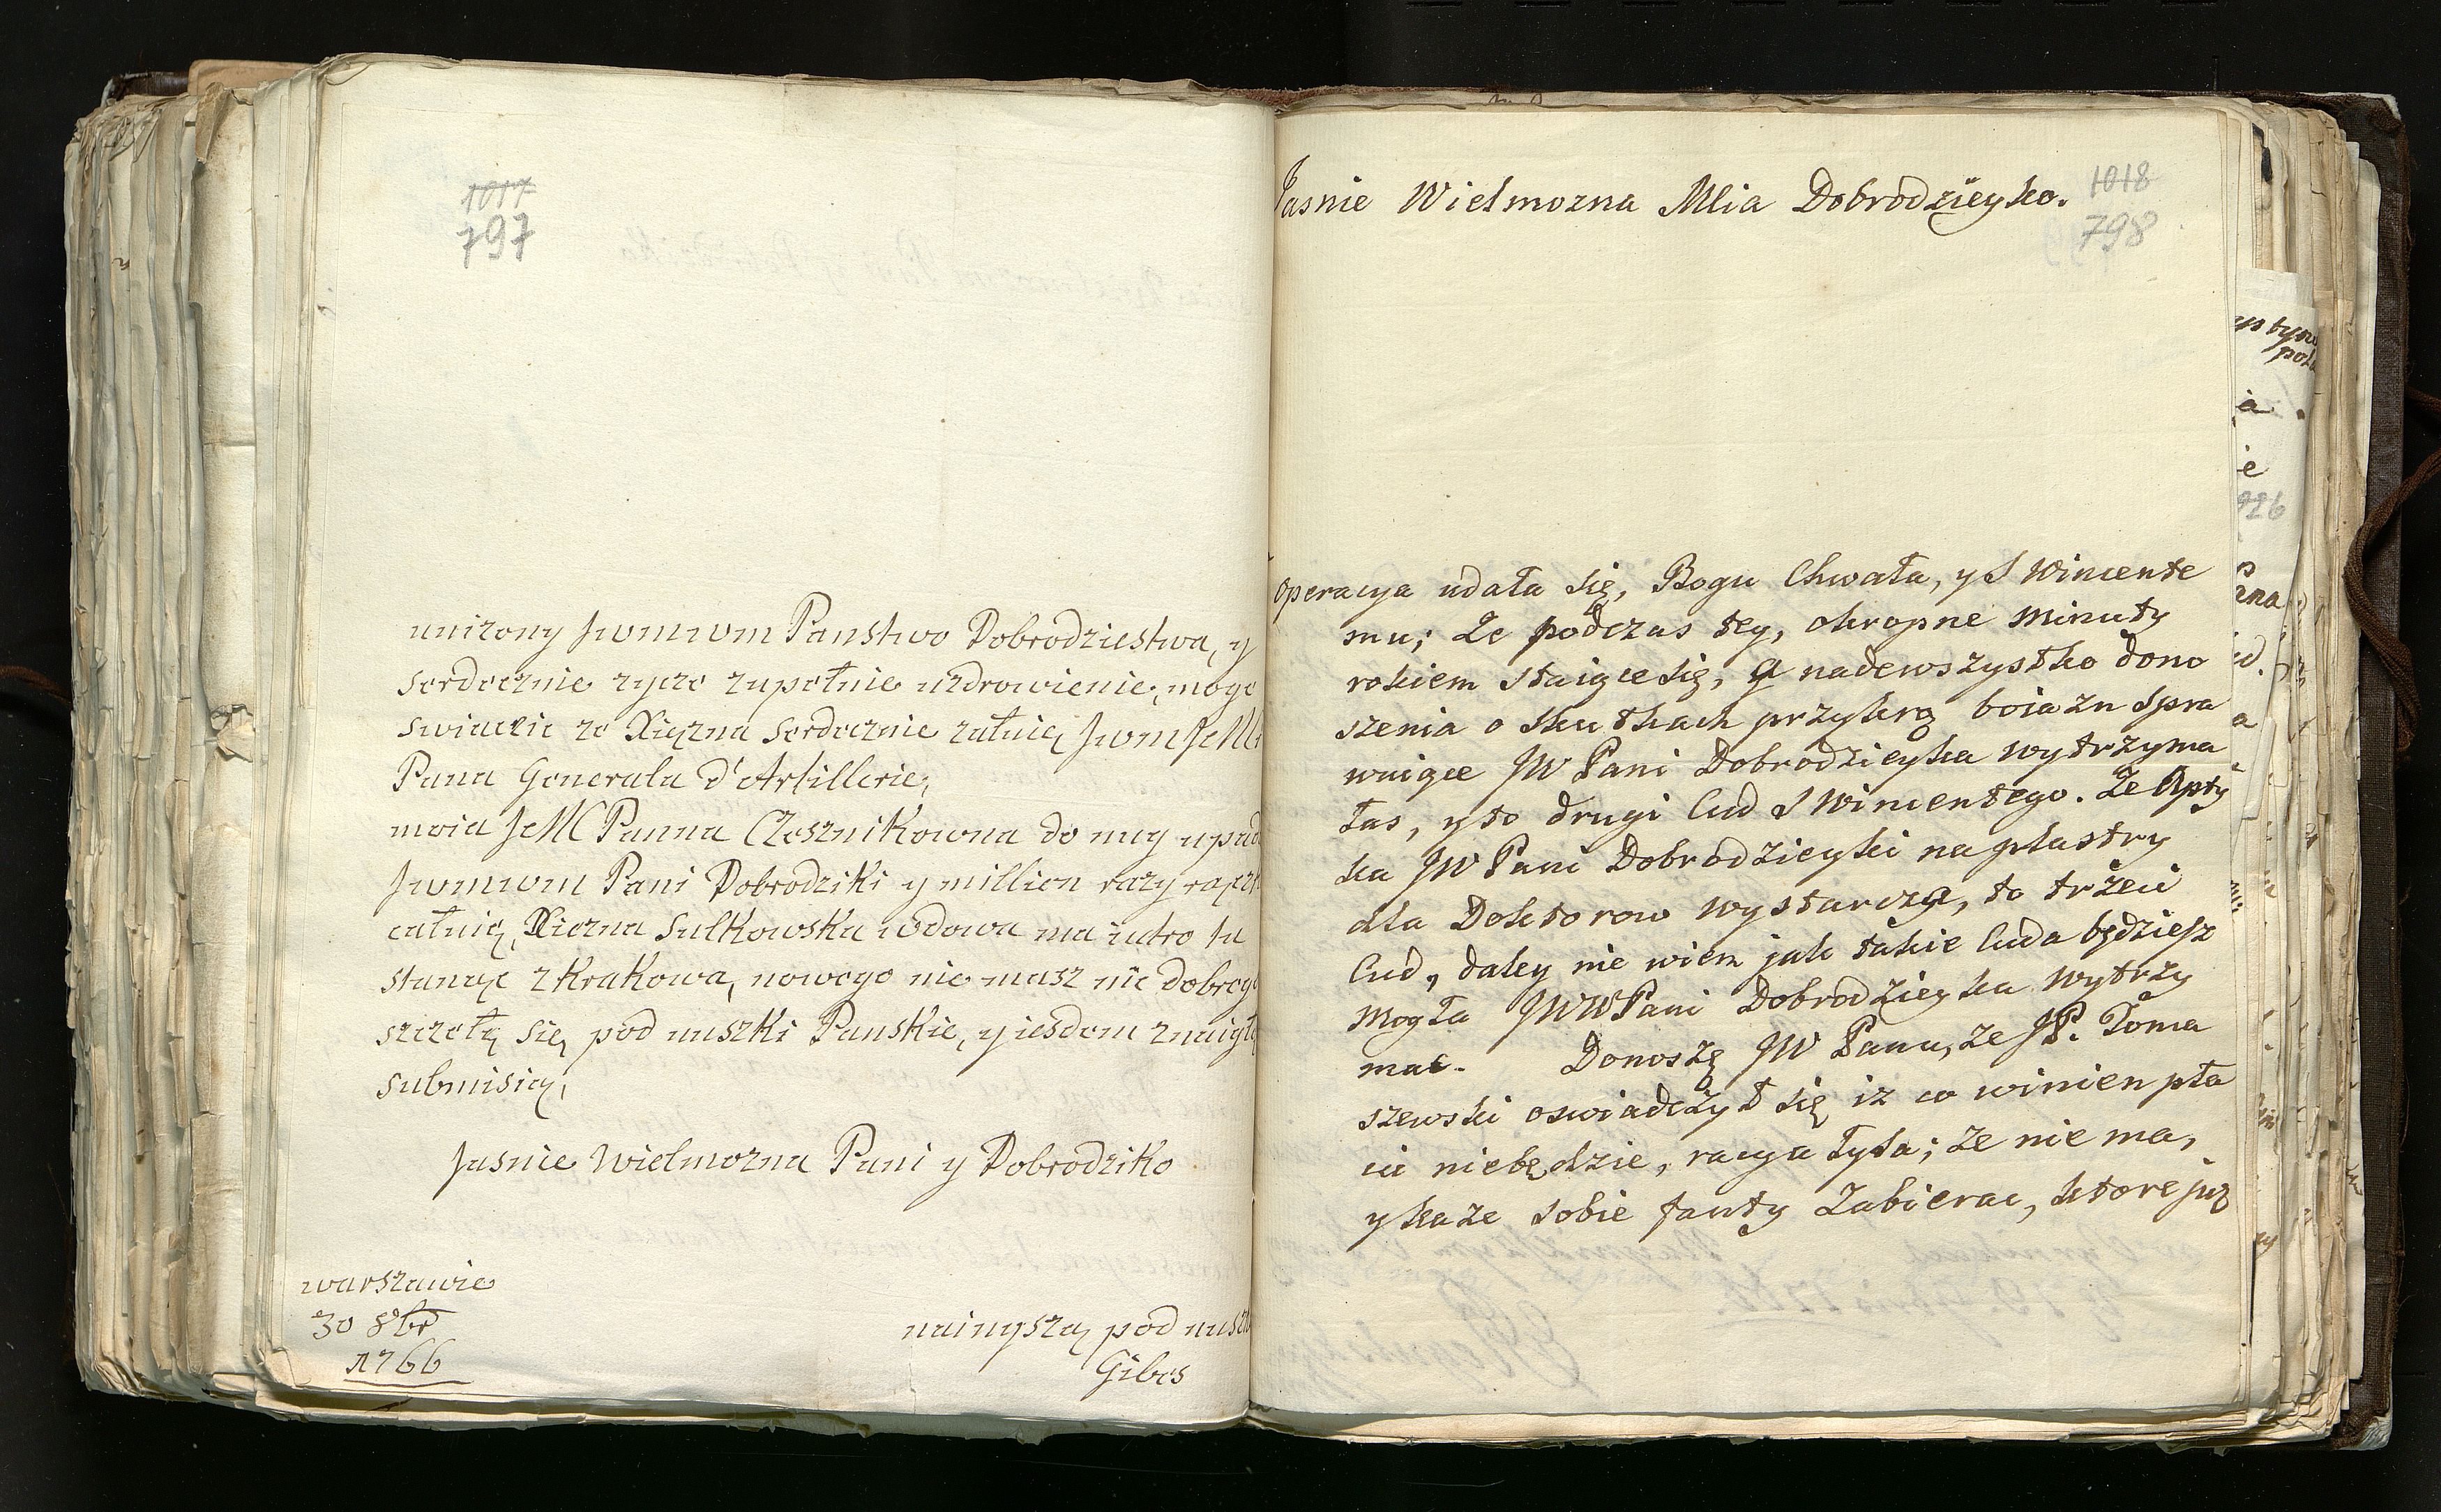 1017
797
unizony Jwmwm Panstwo Dobrodziestwa, y
serdecznie zycze zupełnie uzdrowienie, moge
swiaczic ze Xięzna serdecznie załuię
Pana Generala d'Artillerie,
moia Panna Czesznikowna do nug upad
Jwmwm Pani Dobrodziki y million razy
całuię, Xiezna Sulkowska wdowa ma iutro tu
stanąc z Krakowa, nowego nie masz nic dobrego
szczełę się pod nuszki Panskie, y iesdem znaigłę
submisię,
Jasnie Wielmozna Pani y Dobrodziko
warszawie
30 8br
1766
nainyszą pod nusz
Gibes
1018
798
Jasnie Wielmozna Mśia Dobrodzieyko.
Operacya udała się, Bogu Chwała, y S Wincente
mu; Ze podczas tey, okropne minuty
rokiem staiące się, a nadewszystko dono
szenia o skutkach przykrą boiazn spra
wuiące JW Pani Dobrodzieyka wytrzyma
łas, y to drugi Cud S Wincentego. Ze Apty
ka JW Pani Dobrodzieyki na plastry
dla Doktorow wystarcza, to trzeci
Cud, daley nie wiem jak takie Cuda będziesz
mogła JWWPani Dobrodzieyka wytrzy
mac. Donoszę JW Panu, ze JP. Toma
szewski oswiadczył się iz co winien pła
cic niebędzie, racya tyla; ze nie ma,
y kaze sobie fanty Zabierac, ktore już
926